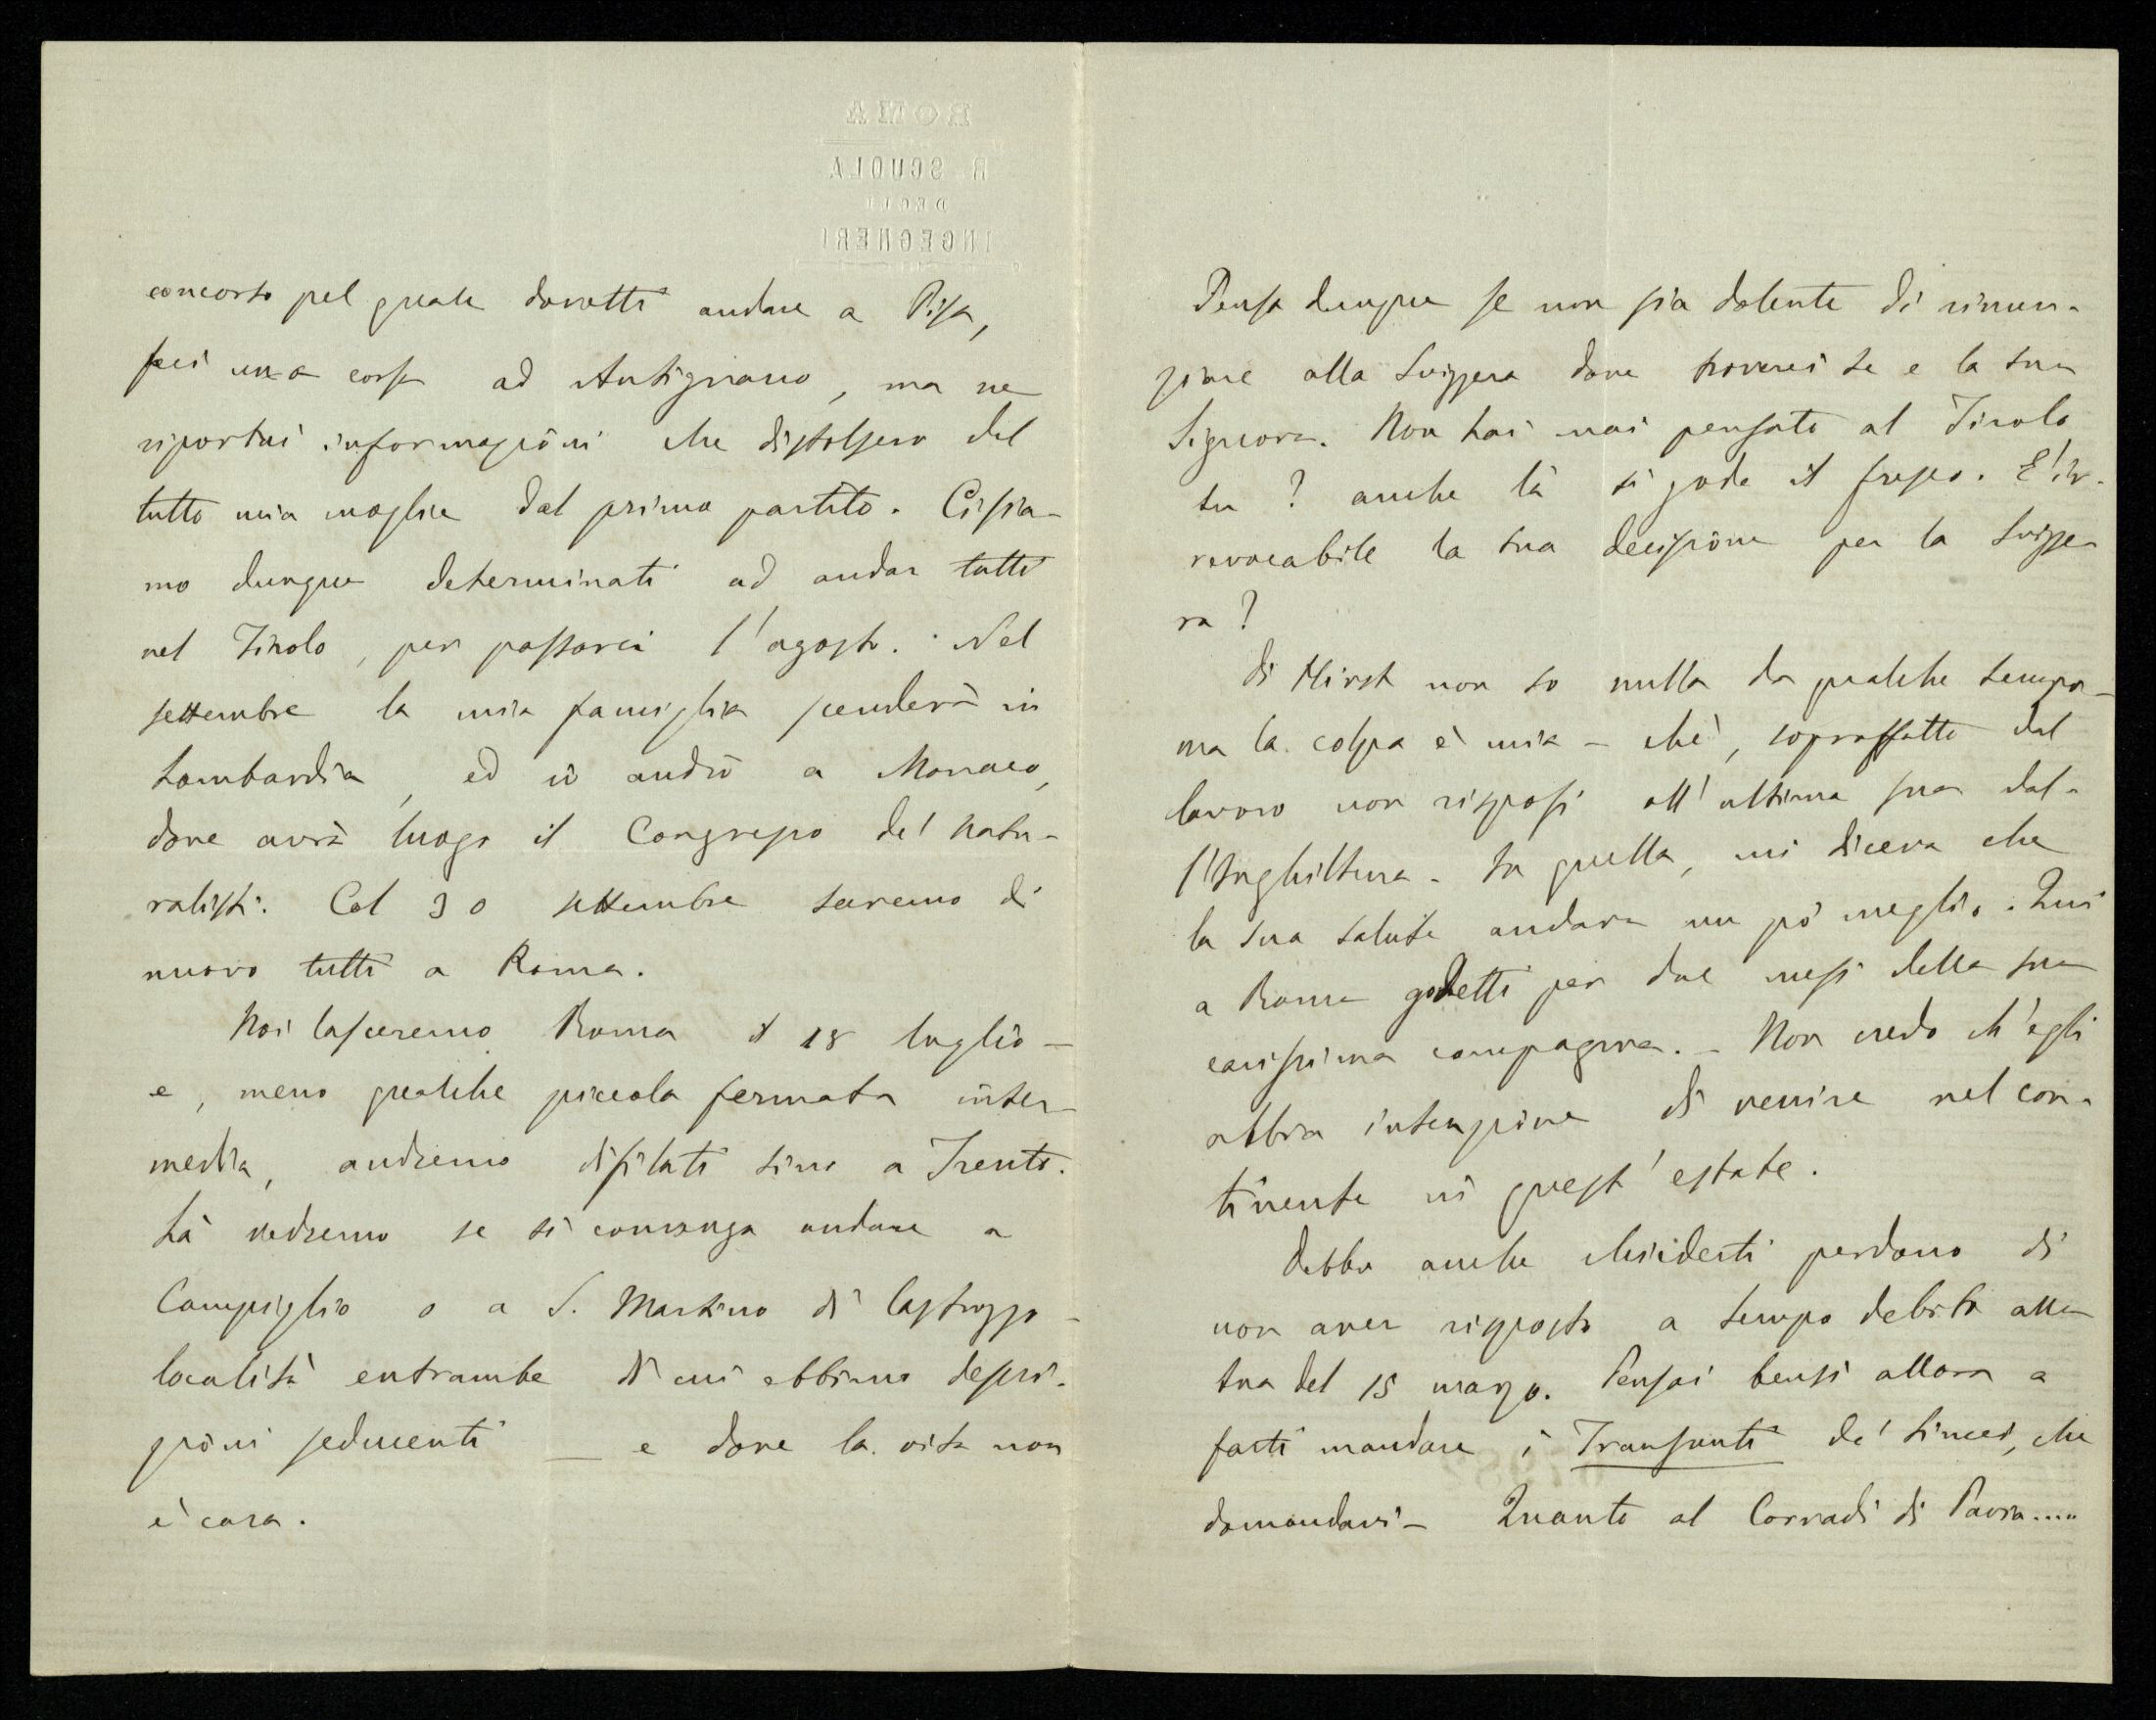 ROMA
R. SCUOLA
DEGLI
INGEGNERI
concorso pel quale dovetti andare a Pisa,
feci una corsa ad Antignano, ma ne
riportai informazioni che distolsero del
tutto mia moglie dal primo partito. Ci sia-
mo dunque determinati ad andar tutti
nel Tirolo, per passarci l'agosto. Nel
settembre la mia famiglia scenderà in
Lombardia, ed io andrò a Monaco,
dove avrà luogo il Congresso de' natu-
ralisti. Col 30 settembre saremo di
nuovo tutti a Roma.
Noi lasceremo Roma il 18 luglio -
e, meno qualche piccola fermata inter-
media, andremo difilati sino a Trento.
Là vedremo se si convenga andare a
Campiglio o a S. Martino di Castrozzo -
località entrambe di cui abbiamo descri-
zioni seducenti - e dove la vita non
è cara.
Pensa dunque se non sia dolente di rinun-
ziare alla Svizzera dove troverei te e la tua
Signora. Non hai mai pensato al Tirolo
tu? anche là si gode il fresco. E' ir-
revocabile la tua decisione per la Svizze-
ra?
Di Hirst non so nulla da qualche tempo -
ma la colpa è mia - chè, sopraffatto dal
lavoro non risposi all'ultima sua dal-
l'Inghilterra. In quella, mi diceva che
la sua salute andava un pò meglio. Qui
a Roma godetti per due mesi della sua
carissima compagnia. - Non credo ch'egli
abbia intenzione di venire nel con-
tinente in quest'estate.
Debbo anche chiederti perdono di
non aver risposto a tempo debito alla
tua del 15 marzo. Pensai bensì allora a
farti mandare i Transunti de' Lincei, che
domandavi - Quanto al Corradi di Pavia....